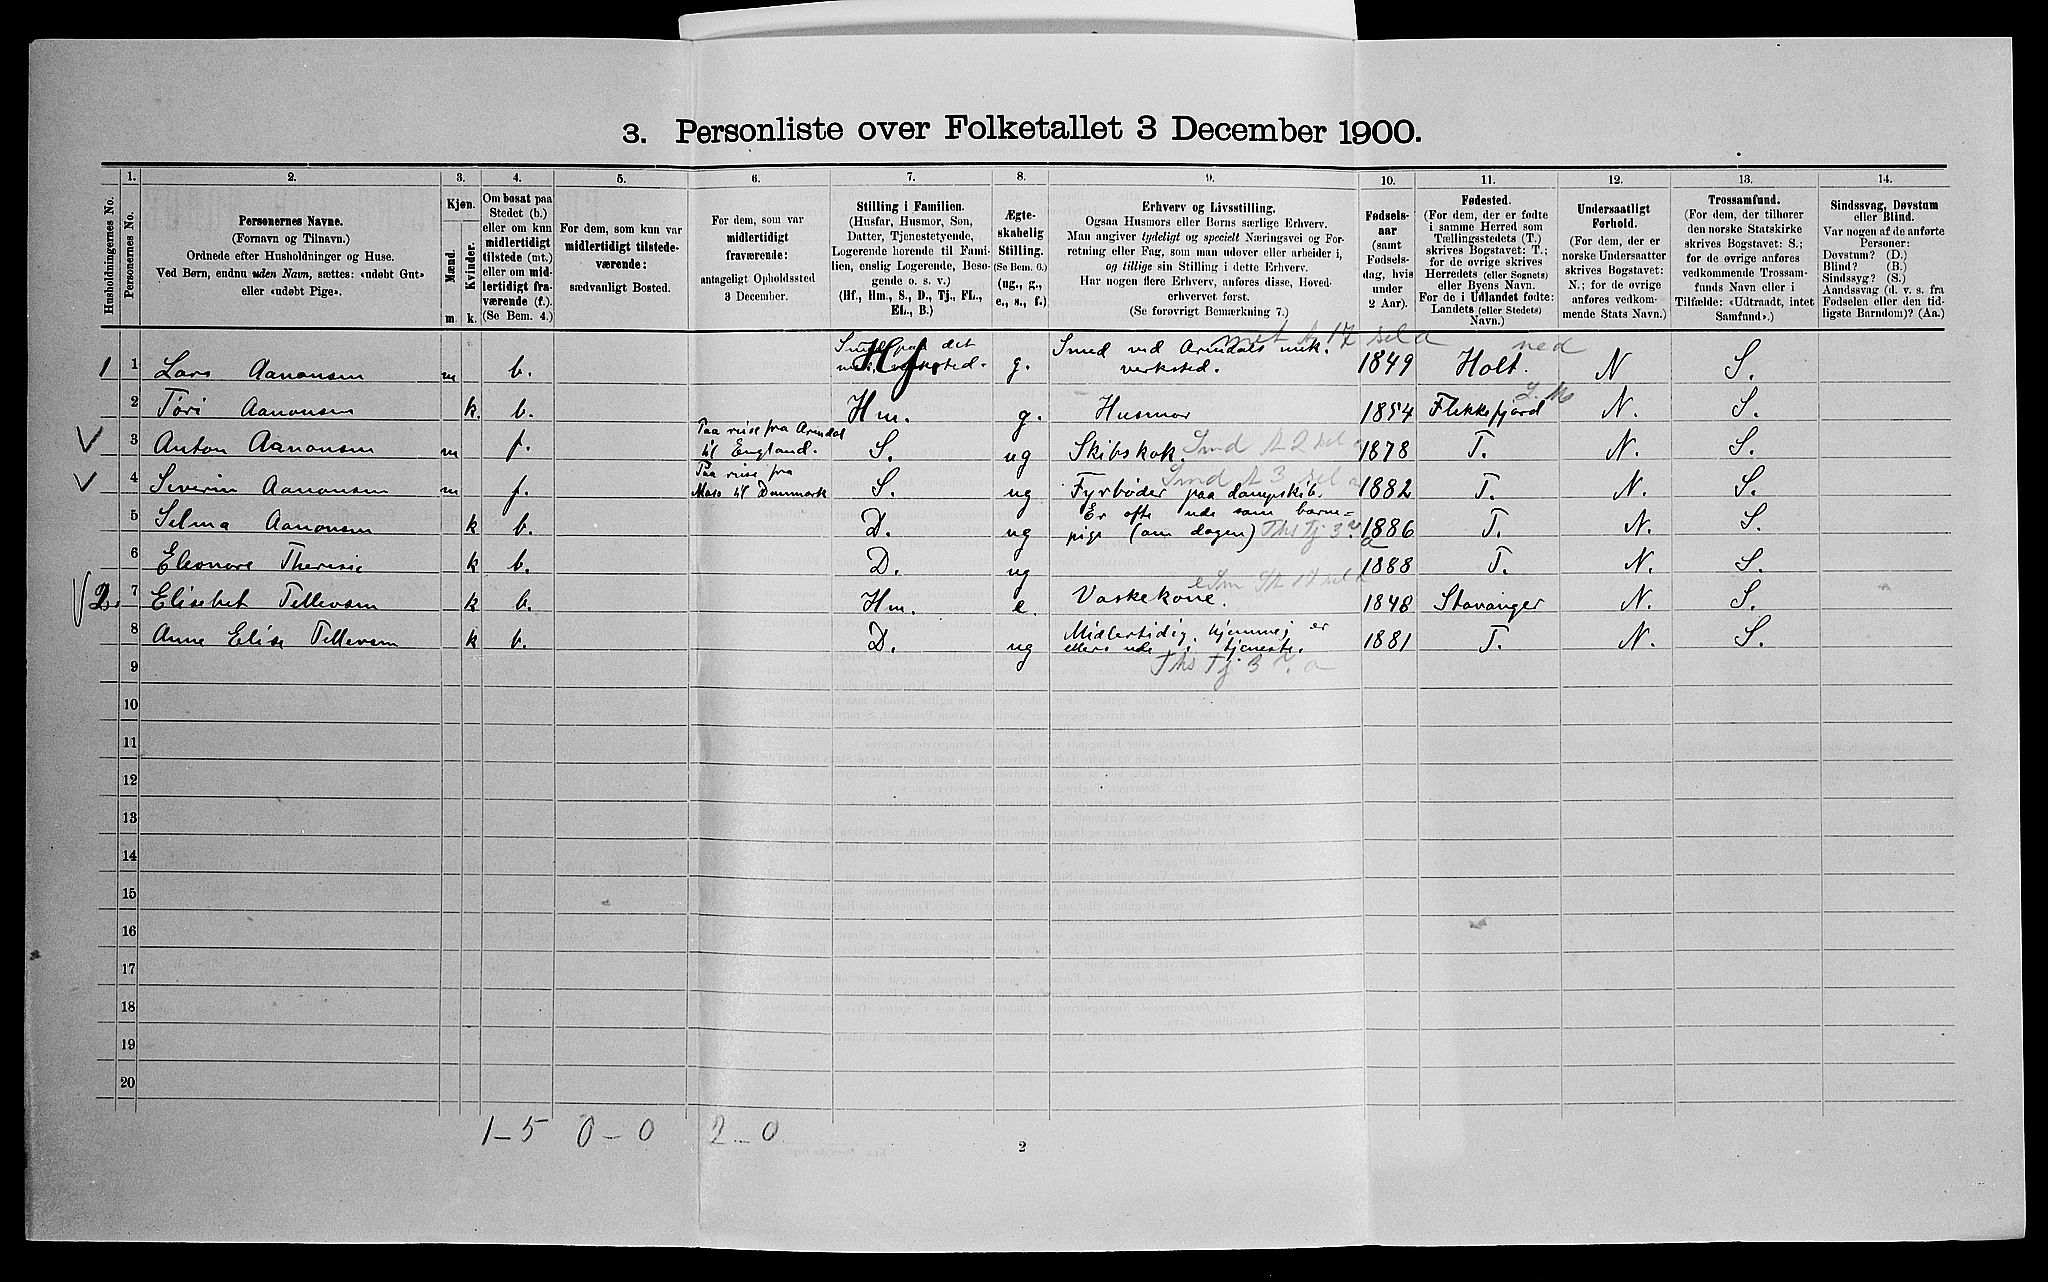 3. Personliste over Folketallet 3 December 1900.
Husholdningernes No.
1.
Personernes No.
2.
Personernes Navne.
(Fornavn og Tilnavn.)
Ordnede efter Husholdninger og Huse.
Ved Børn, endnu uden Navn, sættes: «udøbt Gut»
eller «udøbt Pige».
3.
Kjøn.
Mænd.
Kvinder.
m.
k.
4.
Om bosat paa
Stedet (b.)
eller om kun
midlertidigt
tilstede (mt.)
eller om mid-
lertidigt fra-
værende (f.).
(Se Bem. 4.)
5.
For dem, som kun var
midlertidigt tilstede-
værende:
sædvanligt Bosted.
6.
For dem, som var
midlertidigt
fraværende:
antageligt Opholdssted
3 December.
7.
Stilling i Familien.
(Husfar, Husmor, Søn,
Datter, Tjenestetyende,
Logerende hørende til Fami-
lien, enslig Logerende, Besø-
gende o. s. v.)
(Hf., Hm., S., D., Tj., FL.,
EL., B.)
8.
Ægte-
skabelig
Stilling.
(Se Bem. 6.)
(ug., g.,
e., s., f.)
9.
Erhverv og Livsstilling.
Ogsaa Husmors eller Børns særlige Erhverv.
Man angiver tydeligt og specielt Næringsvei og For-
retning eller Fag, som man udover eller arbeider i,
og tillige sin Stilling i dette Erhverv.
Har nogen flere Erhverv, anføres disse, Hoved-
erhvervet først.
(Se forøvrigt Bemærkning 7.)
10.
Fødsels-
aar
(samt
Fødsels-
dag, hvis
under
2 Aar).
11.
Fødested.
(For dem, der er fødte
i samme Herred som
Tællingsstedets (T.)
skrives Bogstavet: T.;
for de øvrige skrives
Herredets (eller Sognets)
eller Byens Navn.
For de i Udlandet fødte:
Landets (eller Stedets)
Navn.)
12.
Undersaatligt
Forhold.
(For dem, der er
norske Undersaatter
skrives Bogstavet:
N.; for de øvrige
anføres vedkom-
mende Stats Navn.)
13.
Trossamfund.
(For dem, der tilhører
den norske Statskirke
skrives Bogstavet: S.;
for de øvrige anføres
vedkommende Trossam-
funds Navn eller i
Tilfælde: «Udtraadt, intet
Samfund».)
14.
Sindssvag, Døvstum
eller Blind.
Var nogen af de anførte
Personer:
Døvstum? (D.)
Blind? (B.)
Sindssyg? (S.)
Aandssvag (d. v. s. fra
Fødselen eller den tid-
ligste Barndom)? (Aa.)
1 1 Lars Aanonsen m b. Hf. g. Smed ved Arendals mek. verksted. 1849 Holt. N S.
2 Tori Aanonsen k. b. Hm. g. Husmor 1854 Flekkefjord N. S.
3 Anton Aanonsen m f. Paa reise fra Arendal til England. S. ug Skibskok. 1878 T. N. S.
4 Severin Aanonsen m f. Paa reise fra Moss til Danmark S. ug Fyrbøder paa dampskib. 1882 T. N. S.
5 Selma Aanonsen k b. D. ug Er ofte ude som barne-
pige (om dagen) 1886 T. N. S.
6 Eleonore Theresie k b. D. ug 1888 T. N. S.
2. 7 Elisebet Tellevsen k b. Hm. e. Vaskekone. 1848 Stavanger N. S.
8 Anne Elise Tellevsen k b. D. ug Midlertidig hjemme, er
ellers ude i tjeneste. 1881 T. N. S.
9
10
11
12
13
14
15
16
17
18
19
20
1-5 0-0 2-0
2